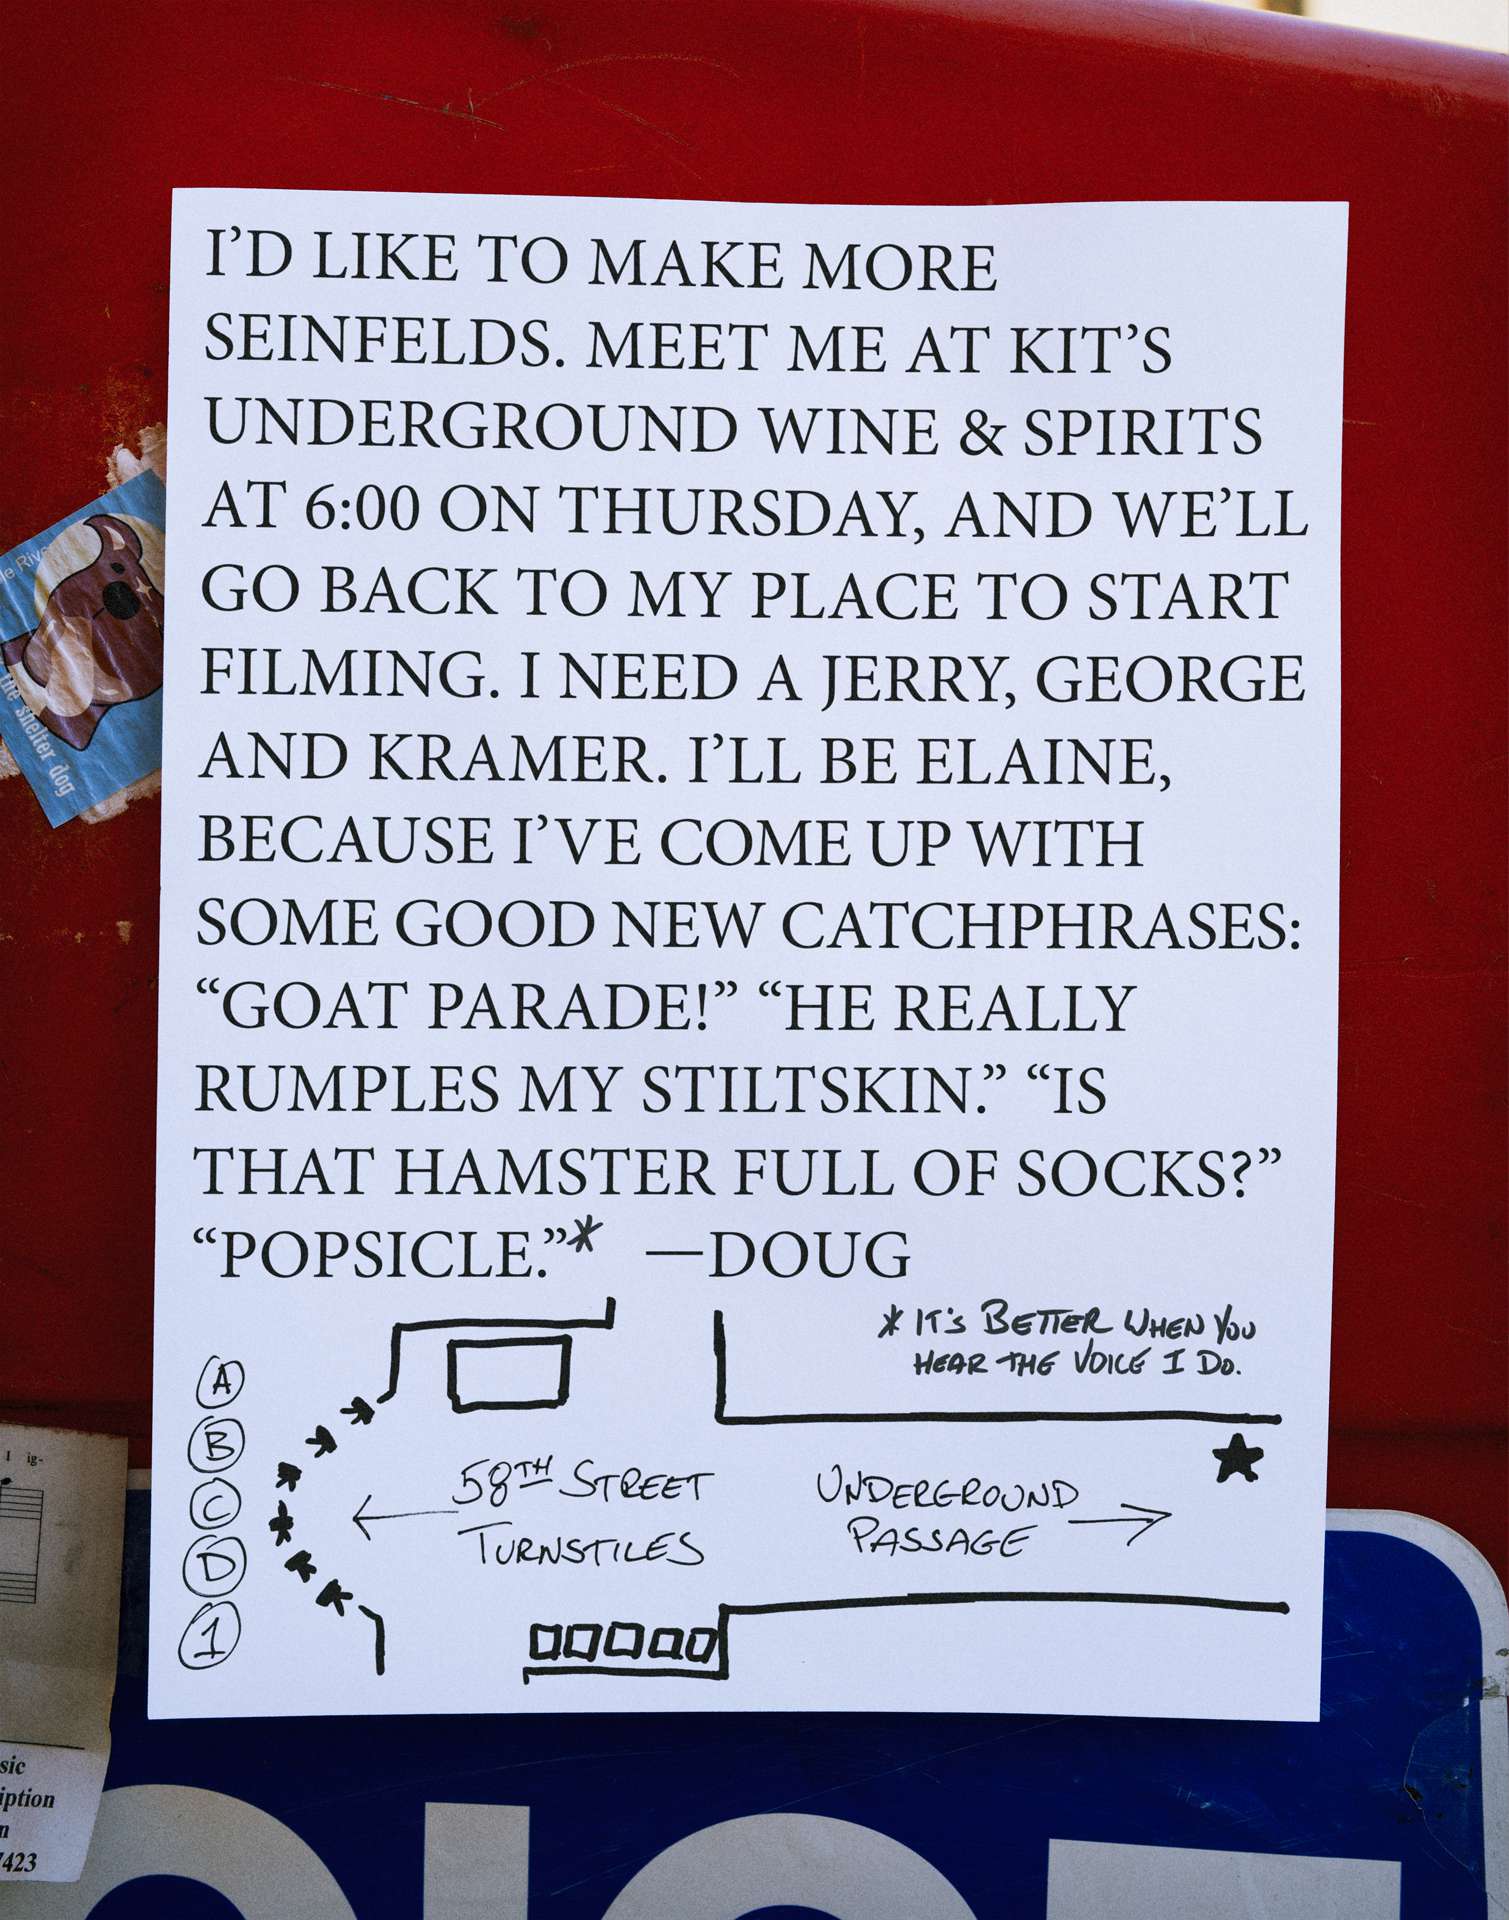 I’D LIKE TO MAKE MORE
SEINFELDS. MEET ME AT KIT’S
UNDERGROUND WINE & SPIRITS
AT 6:00 ON THURSDAY, AND WE’LL
GO BACK TO MY PLACE TO START
FILMING. I NEED A JERRY, GEORGE
AND KRAMER. I’LL BE ELAINE,
BECAUSE I’VE COME UP WITH
SOME GOOD NEW CATCHPHRASES:
“GOAT PARADE!” “HE REALLY
RUMPLES MY STILTSKIN.” “IS
THAT HAMSTER FULL OF SOCKS?”
“POPSICLE.”* —DOUG
* IT'S BETTER WHEN YOU
HEAR THE VOICE I DO.
A
B
C
D
1
58TH STREET
TURNSTILES
UNDERGROUND
PASSAGE
the shelter dog
I ig-
sic
iption
n
7423